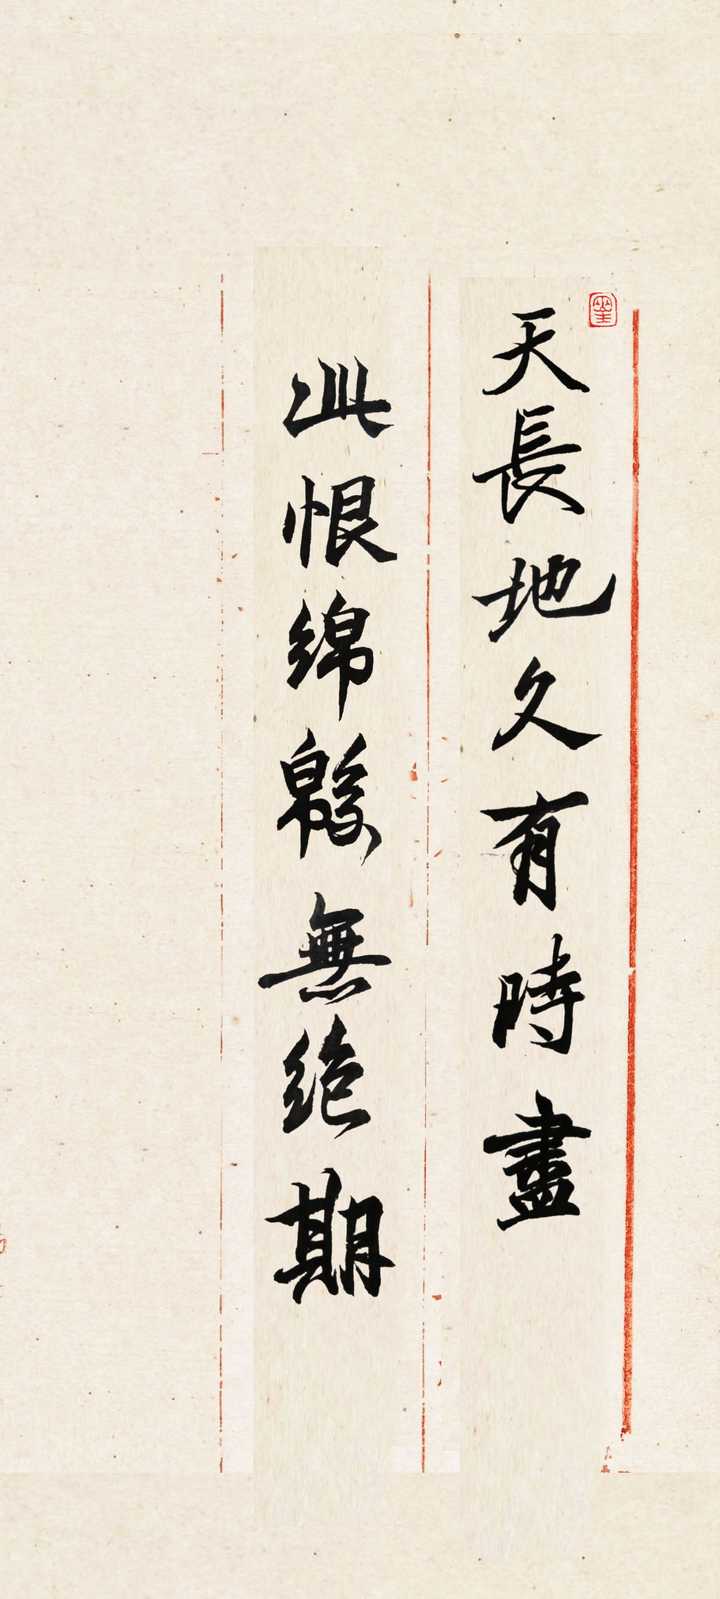 天長地久有時盡
此恨綿緜無絕期